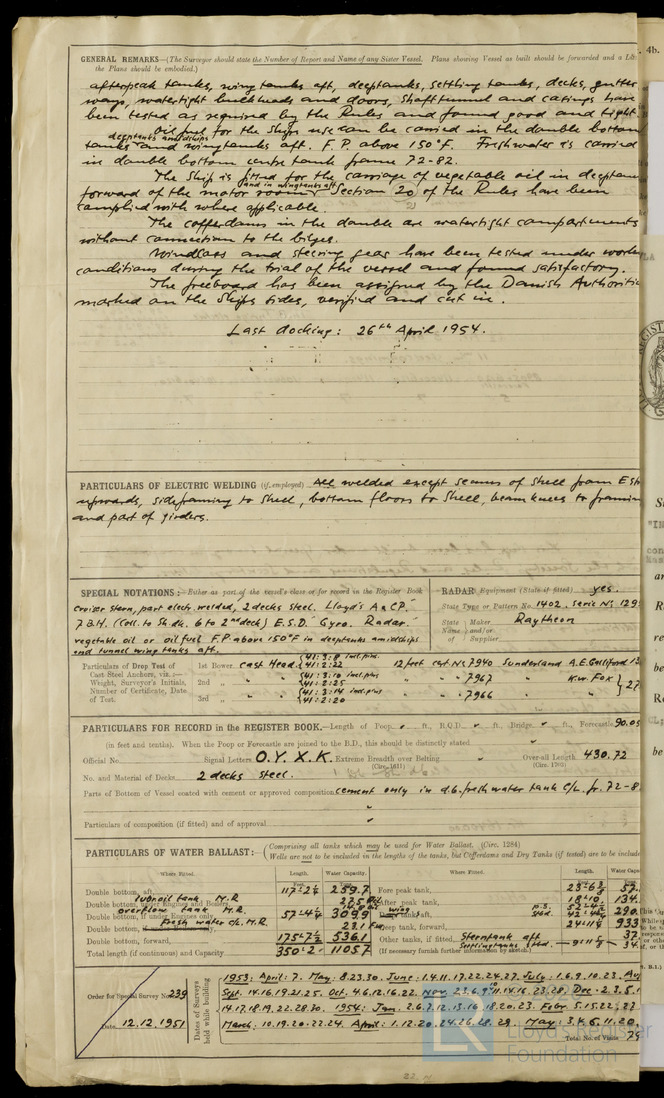 GENERAL REMARKS—(The Surveyor should state the Number of Report and Name of any Sister Vessel. Plans showing Vessel as built should be forwarded and a
the Plans should be embodied.)
afterpeak tanks, wing tanks aft, deeptanks, settling tanks, decks, gutter
ways, watertight bulkheads and doors, shafttunnel and casings have
been tested as required by the Rules and found good and tight.
Oil fuel for the ships use can be carried in the double bottom
deeptanks amidships
tanks and wingtanks aft. F.P. above 150°F. Freshwater is carried
in double bottom centre tank frame 72-82.
The Ship is fitted for the carriage of vegetable oil in deeptan
(and in wingtanks aft)
forward of the motor room. Section 20 of the Rules have been
complied with where applicable.
The cofferdams in the double are watertight compartments
without connection to the bilges.
Windlass and steering gear have been tested under worki
conditions during the trial of the vessel and found satisfactory.
The freeboard has been assigned by the Danish Authoriti
marked on the Ships sides, verified and cut in.
Last docking: 26th April 1954.
PARTICULARS OF ELECTRIC WELDING (if employed) All welded except seams of shell from
upwards, sideframing to shell, bottom floors to shell, beam knees to framin
and part of girders.
SPECIAL NOTATIONS:—Either as part of the vessel's class or for record in the Register Book
Cruiser stern, part electr. welded, 2 decks steel. Lloyd's A & CP.
7 B.H. (Coll. to sh. dk. 6 to 2nd deck) E.S.D. Gyro. Radar.
vegetable oil or oil fuel F.P. above 150°F in deeptanks amidships
and tunnel wing tanks aft.
RADAR Equipment (State if fitted) yes.
State Type or Pattern No. 1402. Serie No. 129
State Name Maker and/or of Supplier Raytheon
Particulars of Drop Test of Cast Steel Anchors, viz.:—
Weight, Surveyor's Initials, Number of Certificate, Date of Test.
1st Bower Cast Head. 41:3:8 incl. pins 41:2:22 12 feet cert. No. 7940 Sunderland
2nd " 41:3:10 incl. pins 41:2:25 " " 7967 " K.W. Fox
3rd " 41:3:14 incl. pins 41:2:20 " " 7966 "
PARTICULARS FOR RECORD in the REGISTER BOOK.—Length of Poop ft., R.Q.D. ft., Bridge ft., Forecastle 90.05
(in feet and tenths). When the Poop or Forecastle are joined to the B.D., this should be distinctly stated
Official No. Signal Letters O.Y.X.K. Extreme Breadth over Belting (Circ. 1611) Over-all Length 430.72 (Circ. 1703)
No. and Material of Decks 2 decks steel.
Parts of Bottom of Vessel coated with cement or approved composition cement only in d.b. freshwater tank C/L fr. 72-8
Particulars of composition (if fitted) and of approval
PARTICULARS OF WATER BALLAST:—(Comprising all tanks which may be used for Water Ballast, (Circ. 1284)
Wells are not to be included in the lengths of the tanks, but Cofferdams and Dry Tanks (if tested) are to be include
Where Fitted. Length. Water Capacity. Where Fitted. Length. Water Capa
Double bottom, aft, 117'-2½ 259.7 Fore peak tank, 57.
luboil tank M.R. After peak tank, 18'-10 134.
overflow tank M.R.
Double bottom, if under Engines only, 57'-4¼ 309.9 wing 290.
Double bottom, Fresh water c/L M.R. 23.1 Deep tank, forward, 933
Double bottom, forward, 175'-7½ 536.1 Other tanks, if fitted, Sterntank aft 37.
Total length (if continuous) and Capacity 350'-2 1105.7 (If necessary furnish further information by sketch.) Settlingtanks 34.
Order for Special Survey No. 239
Date 12.12.1951
Dates of Surveys held while building
1953: April: 7. May: 8.23.30. June: 1.4.11.17.22.24.27. July: 1.6.9.10.23.
Sept. 14.16.19.21.25. Oct. 4.6.12.16.22. Nov. 2.3.6.9.11.14.16.23.28. Dec. 2.3.5.
14.17.18.19.22.28.30. 1954: Jan. 2.6.7.12.13.16.18.20.23. Febr. 5.15.22.
March: 10.19.20.22.24. April: 1.12.20.24.26.28.29. May: 3.4.6.11.20.
Total No. of Visits
© 2020
Lloyd's Register
Foundation
4b.